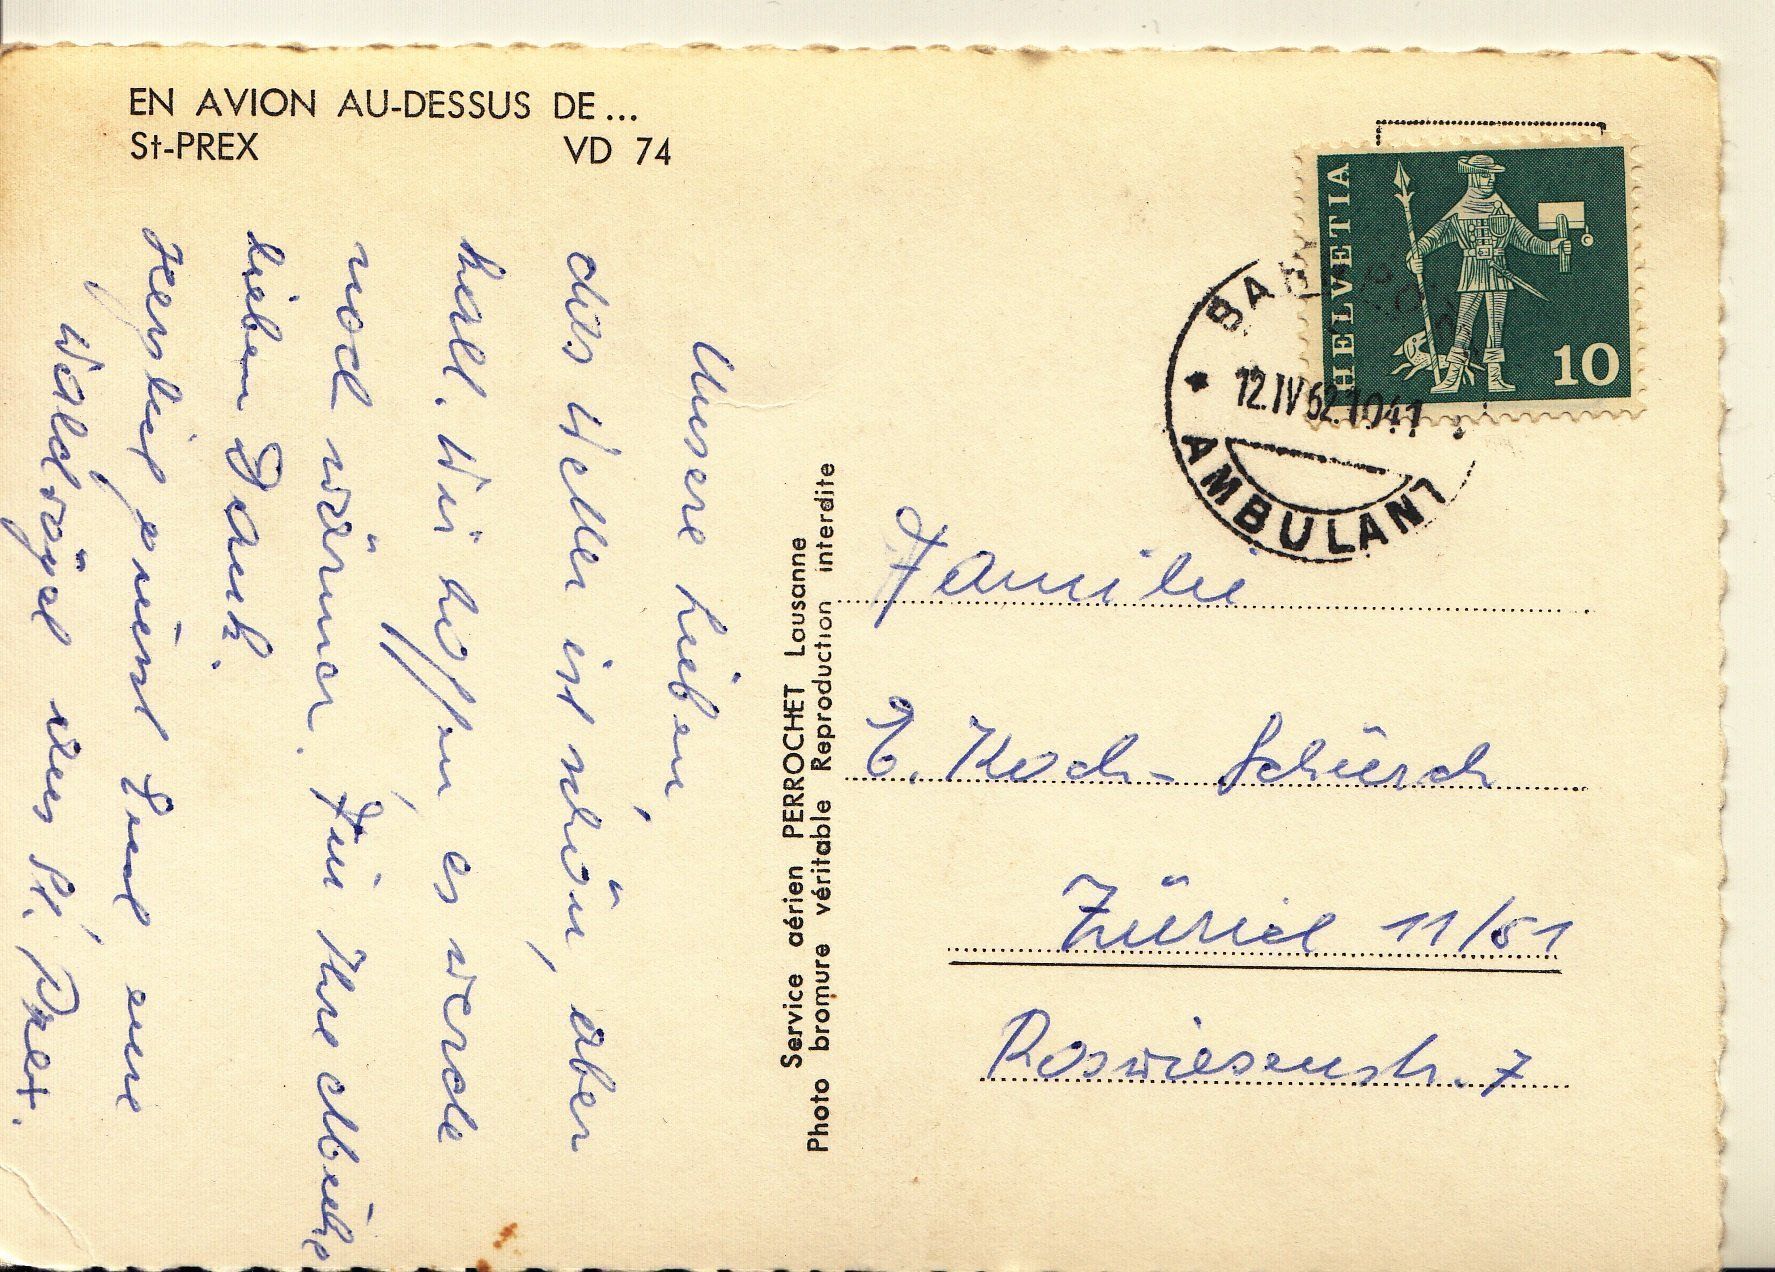 EN AVION AU-DESSUS DE...
St-PREX VD 74
HELVETIA
10
12.IV.62.1041
AMBULANT
Unsere Lieben,
das Wetter ist schön, aber
kalt. Wir hoffen, es werde
noch wärmer. Für Ihre
lieben Dank.
Herzlich grüsst Euch eure
Waldvögel aus St. Prex.
Service aérien PERROCHET Lausanne
Photo bromure véritable Reproduction interdite
Familie
E. Koch-Schürch
Zürich 11/51
Roswiesenstr. 7